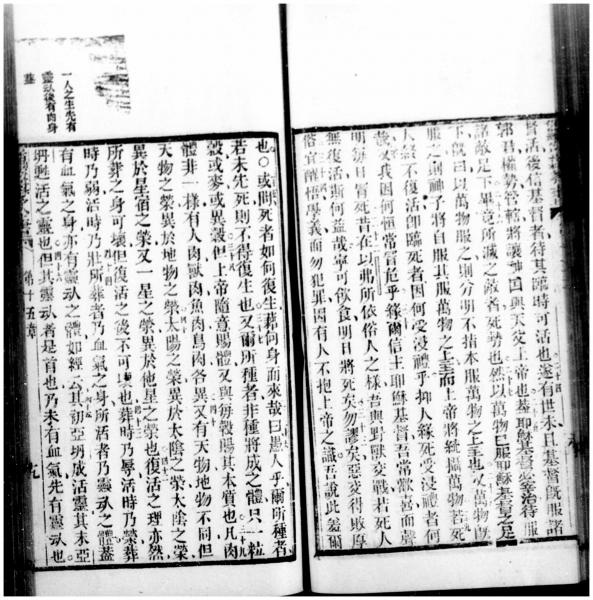 督活後信基督者待其蹕時可活也遂有世末且基督旣服諸
郭君權勢管轄將讓神國與天父上帝也蓋耶穌基督治待服
諸敵足下畢竟所滅之敵者死勢也然以萬物曰服耶穌基督之足
下旣曰以萬物服之則分明不指本服萬物之上主也又萬物旣
服之則神子將自服其服萬物之上主而上帝將統攝萬物若死
人終不復活卽臨死者因何受浸禮乎抑人緣死受浸禮者何
哉又我因何恒常冒危乎緣爾信主耶穌基督吾常歡喜面蒙
明每日冒死昔在以弗所依俗人之樣吾與野獸交戰若死人
無復活斯何益哉寧可飲食明日將死矣勿謬矣惡交得敗厚
俗宜醒悟學義而勿犯罪因有人不抱上帝之識吾說此羞爾
一人之生先有
靈魂後有肉身
葢
也○或問死者如何復生藉何身而來哉曰愚人乎爾所種者
若未先死則不得復生也又爾所種者非種將成之體只一粒
穀或麥或異穀但上帝隨意賜體又與每穀賜其本質也凡肉
體非一樣有人肉獸肉魚肉鳥肉各異又有天物地物不同但
天物之榮異於地物之榮太陽之榮異於太陰之榮太陰之榮
異於星宿之榮又一星之榮異於他星之榮也復活之理亦然
所葬之身可壞但復活之後不可壞也葬時乃辱活時乃榮葬
時乃弱活時乃壯所葬者乃血氣之身所活者乃靈魂之體蓋
有血氣之身亦有靈魂之體如經云其初亞坍成活靈其末亞
坍甦活之靈也但其靈魂者是首也乃未有血氣先有靈魂也
第十五章
九